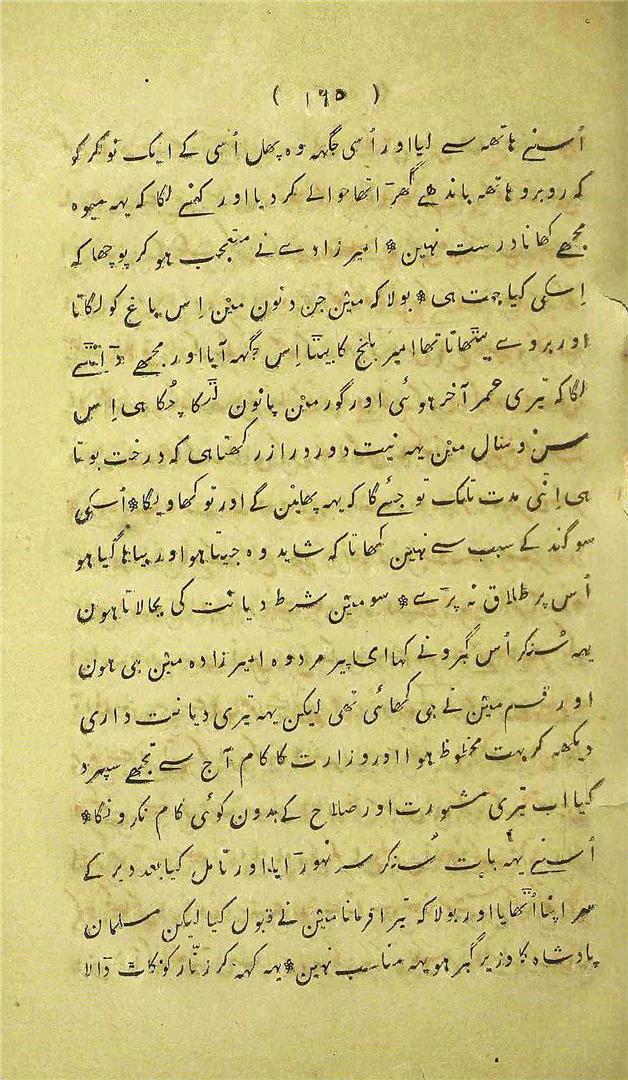 ( ۱۶۵ )
اُسنے ہاتھہ سے لیا اور اُسی جگہہ وہ پھل اُسی کے ایک نوکر کو
کہ روبرو ہاتھہ باندھے کھڑا تھا حوالے کر دیا اور کہنے لگا کہ یہہ میوہ
مجھے کھانا درست نہین * امیر زادے نے متعجب ہو کر پوچھا کہ
اِسکی کیا جہت ہی * بولا کہ مین جن دنون مین اِس باغ کو لگاتا
اور بروے بیٹھاتا تھا امیر بلخ کا بیٹا اِس جگہہ آیا اور مجھے ڈانٹنے
لگا کہ تیری عمر آخر ہوئی اور گور مین پانون لٹکا چُکا ہی اِس
سن و سال مین یہہ نیت دور دراز رکھتا ہی کہ درخت بوتا
ہی اِتنی مدت تلک تو جئے گا کہ یہہ پھلینگے اور تو کھاویگا * اُسکی
سوگند کے سبب سے نہین کھاتا کہ شاید وہ جیتا ہو اور بیاہا گیا ہو
اُس پر طلاق نہ پڑے * سو مین شرط دیانت کی بجا لاتا ہون
یہہ سُنکر اُس گبرو نے کہا ای پیر مرد وہ امیر زادہ مین ہی ہون
اور قسم مین نے ہی کھائی تھی لیکن یہہ تیری دیانت داری
دیکھہ کر بہت محظوظ ہوا اور وزارت کا کام آج سے تجھے سپرد
کیا اب تیری مشورت اور صلاح کے بدون کوئی کام نکرونگا *
اُسنے یہہ بات سُنکر سر نہوڑایا اور تامل کیا بعد دیر کے
سر اپنا اُٹھایا اور بولا کہ تیرا فرمانا مین نے قبول کیا لیکن مسلمان
پادشاہ کا وزیر گبر ہو یہہ مناسب نہین * یہہ کہہ کر زنّار کو کاٹ ڈالا